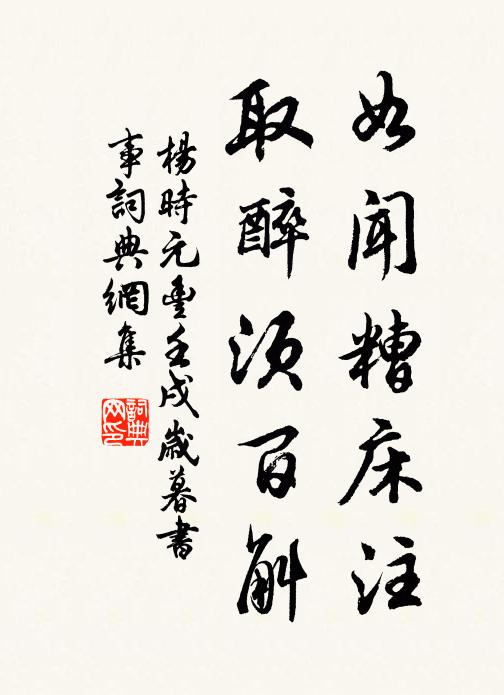 如聞糟床注
取醉須百斛
楊時元豐壬戌歲暮書
事詞典網集
詞典
网印